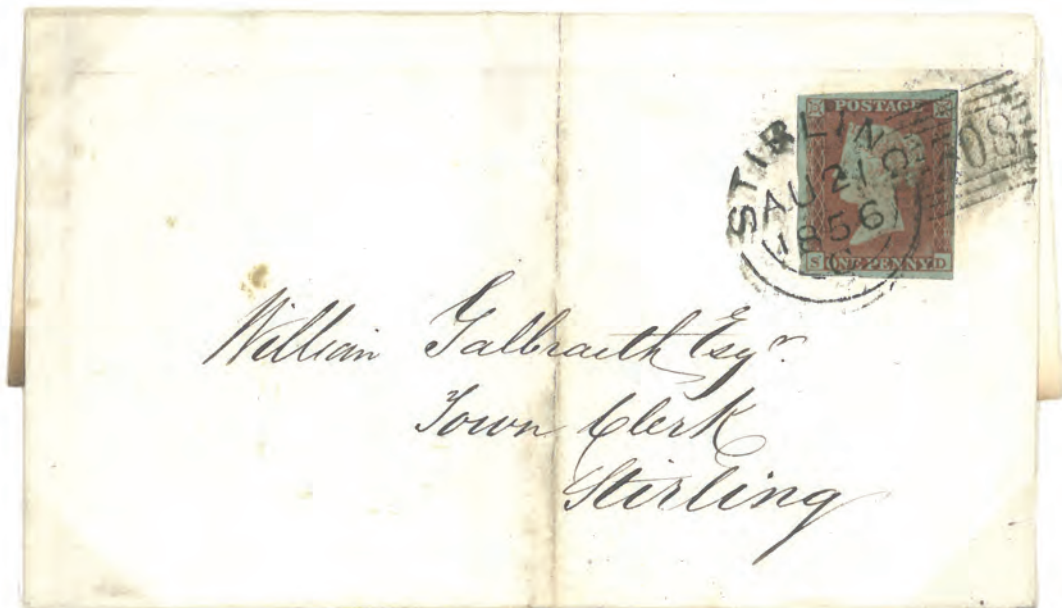 POSTAGE
S ONE PENNY D
STIRLING
AU 21 C
1856
William Galbraith Esqr.
Town Clerk
Stirling